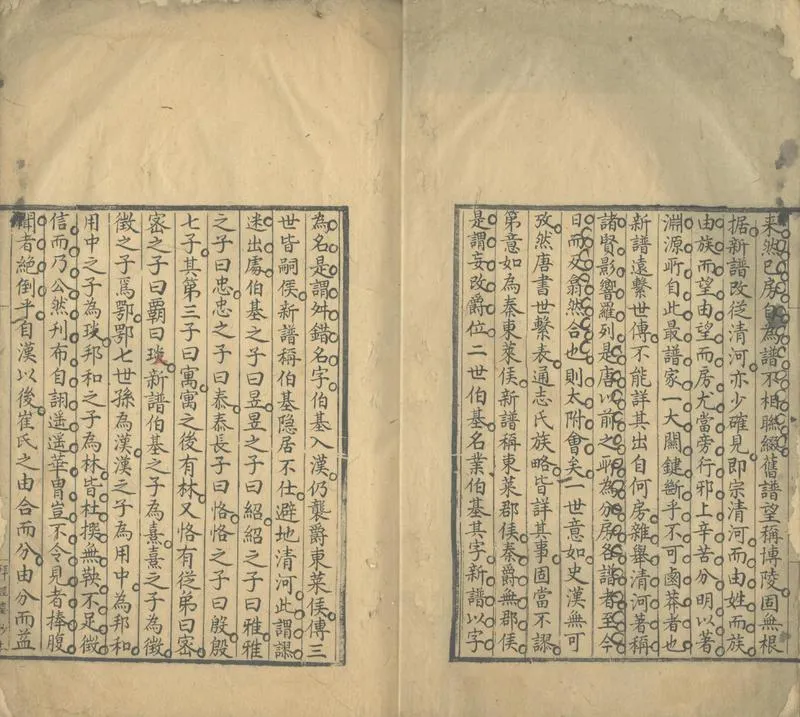 来然已房自為譜不相聯綴舊譜望稱博陵固無根
据新譜改從清河亦少確見即宗清河而由姓而族
由族而望由望而房尤當旁行邪上辛苦分明以著
淵源所自此最譜家一大關鍵斷乎不可鹵莽者也
新譜遠繫世傳不能詳其出自何房雜舉清河著稱
諸賢影響羅列是唐以前之所為分房各譜者至今
日而又翕然合也則太附會矣一世意如史漢無可
攷然唐書世繫表通志氏族略皆詳其事固當不謬
第意如為秦東萊侯新譜稱東萊郡侯秦爵無郡侯
是謂妄改爵位二世伯基名業伯基其字新譜以字
為名是謂舛錯名字伯基入漢仍襲爵東萊侯傳三
世皆嗣侯新譜稱伯基隐居不仕避地清河此謂謬
迷出處伯基之子曰昱昱之子曰紹紹之子曰雅雅
之子曰忠忠之子曰泰泰長子曰恪恪之子曰殷殷
七子其第三子曰寓寓之後有林又恪有從弟曰密
密之子曰霸曰琰新譜伯基之子為熹熹之子為徵
徵之子為鄂鄂七世孫為漢漢之子為用中為邦和
用中之子為琰邦和之子為林皆杜撰無鞅不足徵
信而乃公然刋布自詡遥遥華胄豈不令見者捧腹
聞者絕倒乎自漢以後崔氏之由合而分由分而益